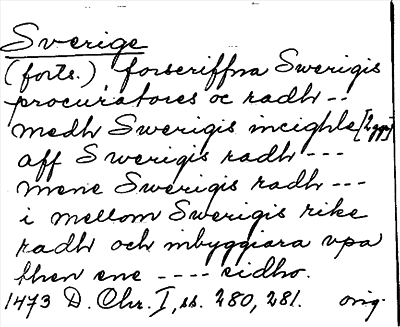 Sverige
(forts.) forscriffna Swerigis
procuratores oc radh --
medh Swerigis incighle [2 ggr]
aff Swerigis radh ---
mene Swerigis radh ---
i mellom Swerigis rike
radh och inbyggiara vpa
then ene ---- sidho.
1473 D. Chr. I, ss. 280, 281. orig.